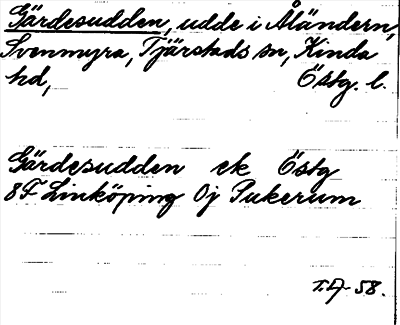 Gärdesudden, udde i Åländern,
Svenmyra, Tjärstads sn, Kinda
hd, Östg. l.
Gärdesudden ek Östg
8F Linköping Oj Pukerum
T.A-58.